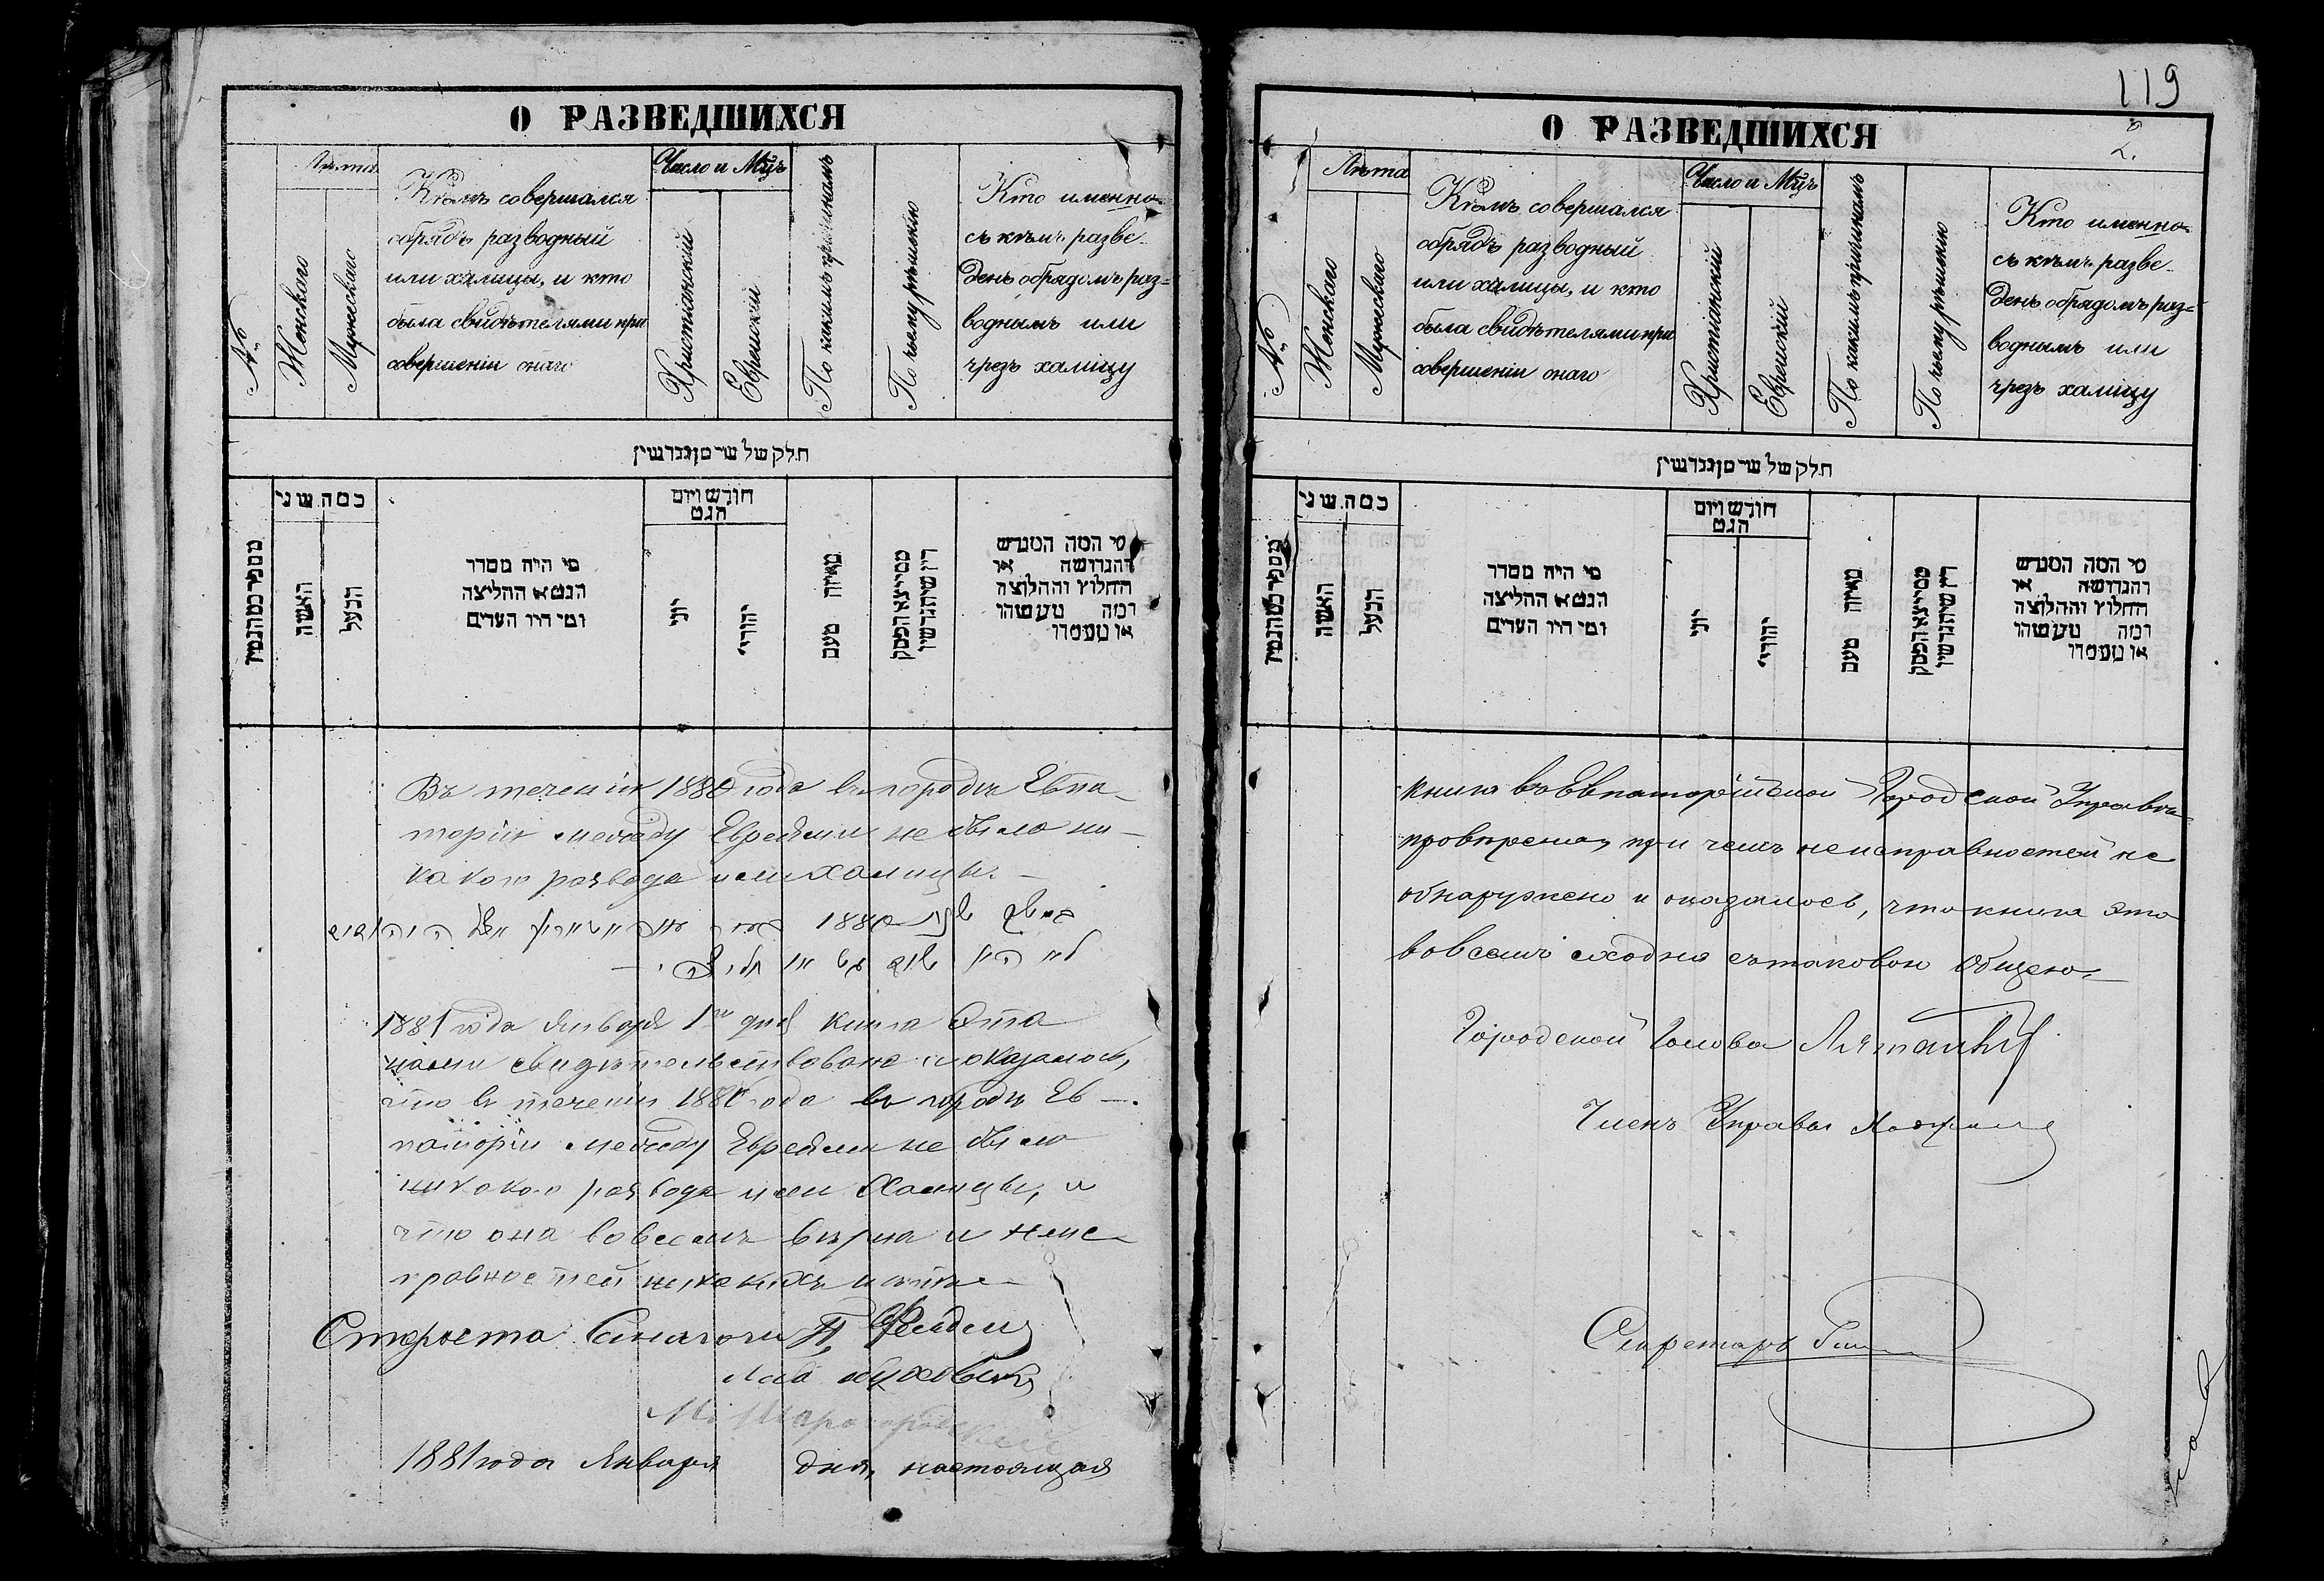 О РАЗВЕДШИХСЯ
№
Лѣта
Женскаго
Мужескаго
Кѣмъ совершался
обрядъ разводный
или халицы, и кто
была свидѣтелями при
совершеніи онаго
Число и Мц҃ъ
Христіанскій
Еврейскій
По какимъ причинамъ
По чьему рѣшенію
Кто именно
съ кѣмъ разве-
денъ обрядомъ раз=
воднымъ или
чрезъ халицу
חלק של
כמה שני
האשה
הבעל
מי היה מסדר
הגט או החליצה
ומי היו העדים
חודש ויום
הגט
יוני
יהודי
מאיזה טעם
מי המה המגרש
והגרושה או
החלוץ והחלוצה
Въ теченіи 1880 года въ городѣ Евпа-
торіи между Евреями не было ни-
какого развода или халицы.-
1880
1881 года Января 1го дня книга эта
нами свидѣтельствована и оказалось,
что въ теченіи 1880 года въ городѣ Ев-
паторіи между Евреями не было
никакого развода или Халицы, и
что она вовсемъ вѣрна и неис-
правностей никакихъ нѣтъ.-
Староста Синагоги
1881 года Января дня, настоящая
119
2.
О РАЗВЕДШИХСЯ
№
Лѣта
Женскаго
Мужескаго
Кѣмъ совершался
обрядъ разводный
или халицы, и кто
была свидѣтелями при
совершеніи онаго
Число и Мц҃ъ
Христіанскій
Еврейскій
По какимъ причинамъ
По чьему рѣшенію
Кто именно
съ кѣмъ разве-
денъ обрядомъ раз=
воднымъ или
чрезъ халицу
חלק של
כמה שני
האשה
הבעל
מי היה מסדר
הגט או החליצה
ומי היו העדים
חודש ויום
הגט
יוני
יהודי
מאיזה טעם
מי המה המגרש
והגרושה או
החלוץ והחלוצה
книга въ Евпаторійской Городской Управѣ
провѣрена, при чемъ неисправностей не
обнаружено и оказалось, что книга эта
вовсемъ сходна съ таковою общею.-
Городской Голова
Членъ Управы
Секретарь